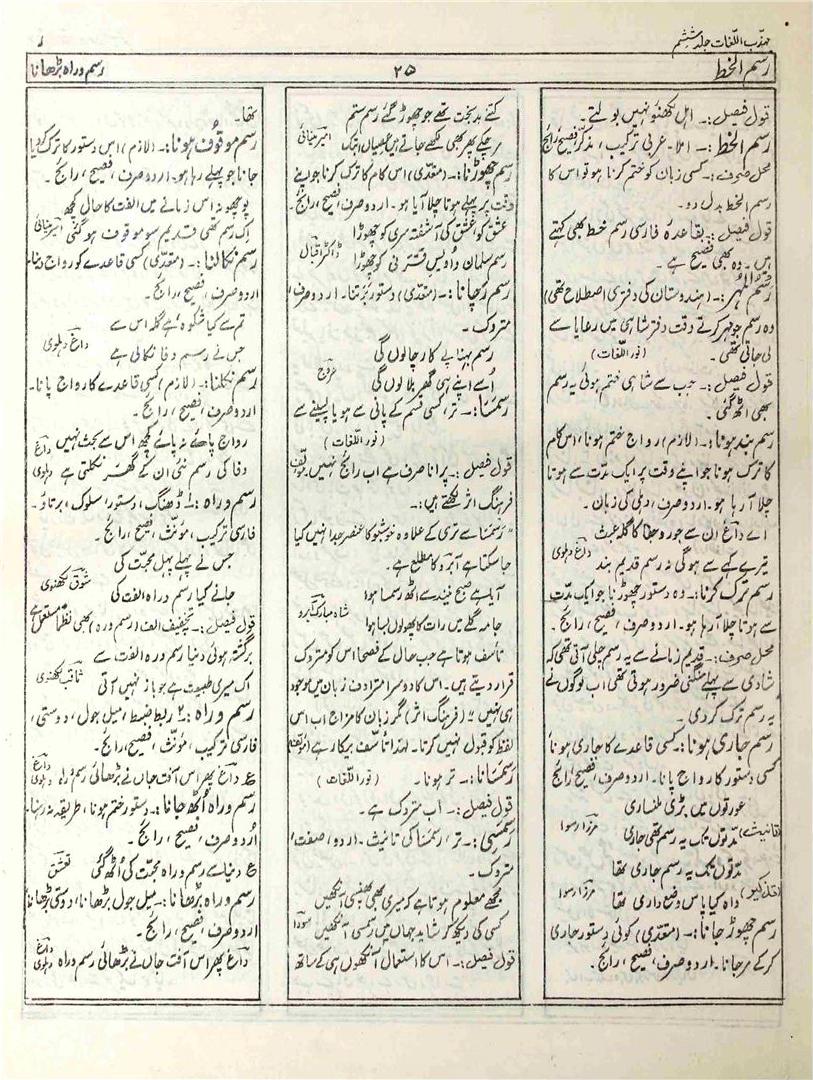 مہذب اللغات جلد ششم
رسم الخط
۲۵
رسم وراہ بڑھانا
قول فیصل:۔ اہل لکھنؤ نہیں بولتے۔
رسم الخط:۔ املا۔ عربی ترکیب، مذکر، فصیح رائج
محل صرف:۔ کسی زبان کو ختم کرنا ہو تو اس کا
رسم الخط بدل دو۔
قول فیصل:۔ بقاعدہ فارسی رسم خط بھی کہتے
ہیں۔ وہ بھی فصیح ہے۔
رسم المہر:۔ (ہندوستان کی دفتری اصطلاح تھی)
وہ رسم جو مہر کرتے وقت دفتر شاہی میں رعایا سے
لی جاتی تھی۔ (نور اللغات)
قول فیصل:۔ جب سے شاہی ختم ہوئی یہ رسم
بھی اٹھ گئی۔
رسم بند ہونا:۔ (لازم) رواج ختم ہونا، اس کام
کا ترک ہونا جو اپنے وقت پر ایک مدت سے ہوتا
چلا آ رہا ہو۔ اردو صرف، دہلی کی زبان۔
اے داغ ان سے جور و جفا کا گلہ عبث
تیرے کہے سے ہوگی نہ رسم قدیم بند داغ دہلوی
رسم ترک کرنا:۔ وہ دستور چھوڑنا جو ایک مدت
سے ہوتا چلا آ رہا ہو۔ اردو صرف، فصیح، رائج۔
محل صرف:۔ قدیم زمانے سے یہ رسم چلی آتی تھی کہ
شادی سے پہلے منگنی ضرور ہوتی تھی اب لوگوں نے
یہ رسم ترک کر دی۔
رسم جاری ہونا:۔ کسی قاعدے کا جاری ہونا
کسی دستور کا رواج پانا۔ اردو صرف، فصیح رائج
عورتوں میں بڑی ملنساری
(تانیث) مدتوں تک یہ رسم تھی جاری مرزا رسوا
مدتوں تک یہ رسم جاری تھا
(تذکیر) واہ کیا پاس وضع داری تھا مرزا رسوا
رسم چھوڑ جانا:۔ (متعدی) کوئی دستور جاری
کر کے مر جانا۔ اردو صرف، فصیح، رائج۔
کتنے بدبخت تھے جو چھوڑ گئے رسم ستم
مر چکے پھر بھی لکھے جاتے ہیں عصیاں اب تک امیر مینائی
رسم چھوڑنا:۔ (متعدی) اس کام کا ترک کرنا جو اپنے
وقت پر پہلے ہوتا چلا آیا ہو۔ اردو صرف، فصیح، رائج۔
عشق کو، عشق کی آشفتہ سری کو چھوڑا
رسم سلمان و اویس قرنی کو چھوڑا ڈاکٹر اقبال
رسم رچانا:۔ (متعدی) دستور برتنا۔ اردو صرف،
متروک۔
رسم بہناپے کا رچا لوں گی
اُسے اپنے ہی گھر بلا لوں گی
رسمسا:۔ تر، کسی قسم کے پانی سے ہو یا پسینے سے
(نور اللغات)
قول فیصل:۔ پرانا صرف ہے اب رائج نہیں۔ مؤلف
فرہنگ اثر لکھتے ہیں:۔
"رسمسا سے تری کے علاوہ خوشبو کا عنصر جدا نہیں کیا
جا سکتا ہے آبرو کا مطلع ہے۔
آیا ہے صبح نیند سے اٹھ رسمسا ہوا
جامہ گلے میں رات کا پھولوں بسا ہوا شاہ مبارک آبرو
تاسف ہوتا ہے جب حال کے فصحا اس کو متروک
قرار دیتے ہیں۔ اس کا دوسرا مترادف زبان میں موجود
ہی نہیں" (فرہنگ اثر) مگر زبان کا مزاج اب اس
لفظ کو قبول نہیں کرتا۔ لہٰذا تاسف بیکار ہے (مؤلف)
رسمسانا:۔ تر ہونا۔ (نور اللغات)
قول فیصل:۔ اب متروک ہے۔
رسمسی:۔ تر، رسمسا کی تانیث۔ اردو، صفت،
متروک۔
مجھے معلوم ہوتا ہے کہ میری بھی پھنسی آنکھیں
کسی کی دیکھ کر شاید جہاں میں رسمسی آنکھیں سودا
قول فیصل:۔ اس کا استعمال آنکھوں ہی کے ساتھ
تھا۔
رسم موقوف ہونا:۔ (لازم) اس دستور کا ترک کر دیا
جانا جو پہلے رہا ہو۔ اردو صرف، فصیح، رائج۔
پوچھو نہ اس زمانے میں الفت کا حال کچھ
اک رسم تھی قدیم سو موقوف ہو گئی امیر مینائی
رسم نکالنا:۔ (متعدی) کسی قاعدے کو رواج دینا۔
اردو صرف، فصیح، رائج۔
تم سے کیا شکوہ ہے گلہ اس سے
جس نے رسم وفا نکالی ہے داغ دہلوی
رسم نکلنا:۔ (لازم) کسی قاعدے کا رواج پانا۔
اردو صرف، فصیح، رائج۔
رواج پائے نہ پائے کچھ اس سے بحث نہیں
وفا کی رسم نئی ان کے گھر نکلتی ہے داغ دہلوی
رسم وراہ:۔ ۱ ڈھنگ، دستور، سلوک، برتاؤ۔
فارسی ترکیب، مؤنث، فصیح، رائج۔
جس نے پہلے پہل محبت کی
جانے کیا رسم و راہ الفت کی شوق لکھنوی
قول فیصل:۔ بتخفیف الف (رسم ورہ) بھی نظماً مستعمل ہے
برگشتہ ہوئی دنیا رسم و رہ الفت سے
اک میری طبیعت ہے جو باز نہیں آتی ثاقب لکھنوی
رسم وراہ:۔ ۲ ربط ضبط، میل جول، دوستی،
فارسی ترکیب، مؤنث، فصیح، رائج۔
ع داغ پھر اس آفت جاں نے بڑھائی رسم و راہ داغ دہلوی
رسم وراہ اُٹھ جانا:۔ دستور ختم ہونا، طریقہ نہ رہنا۔
اُردو صرف، فصیح، رائج۔
ع دنیا سے رسم و راہ محبت کی اُٹھ گئی تعشق
رسم وراہ بڑھانا:۔ میل جول بڑھانا، دوستی بڑھانا
اردو صرف، فصیح، رائج۔
داغ پھر اس آفت جاں نے بڑھائی رسم وراہ داغ دہلوی